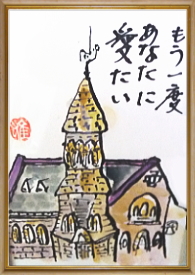 もう一度
あなたに
愛たい